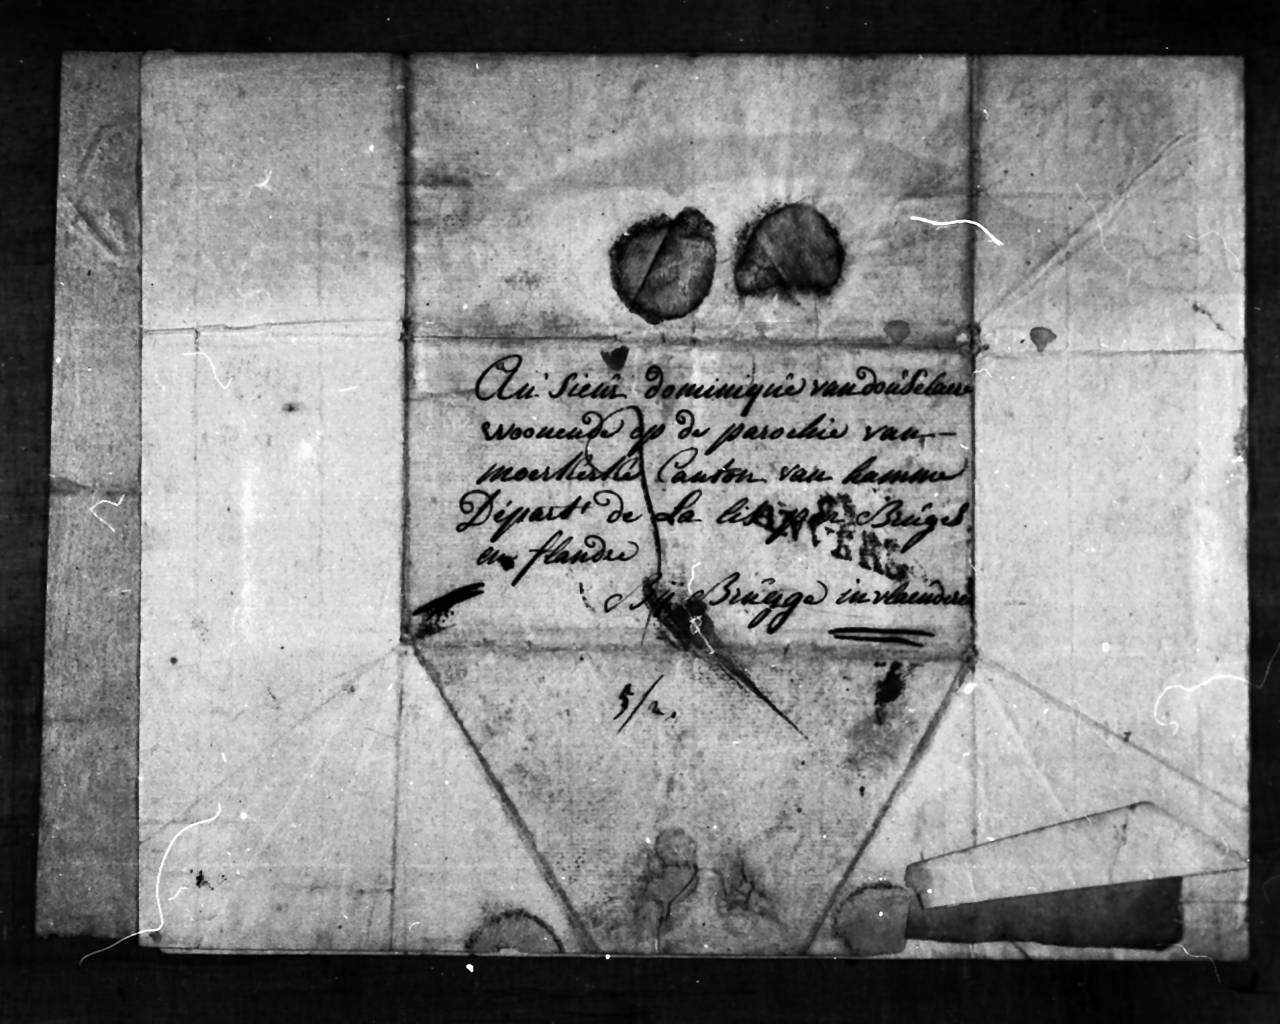 Au Sieur dominique van douselaere
woonende op de parochie van
moerkerke Canton van hamme
Départ de La lis Bruges
en flandre
By Brugge in vlaendere
5/2.